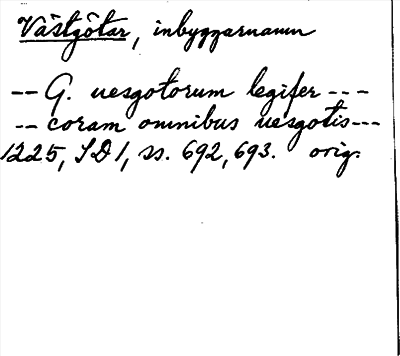 Västgötar, inbyggarnamn
-- G. uesgotorum legifer ---
-- coram omnibus uesgotis ---
1225, SD 1, ss. 692, 693. orig.